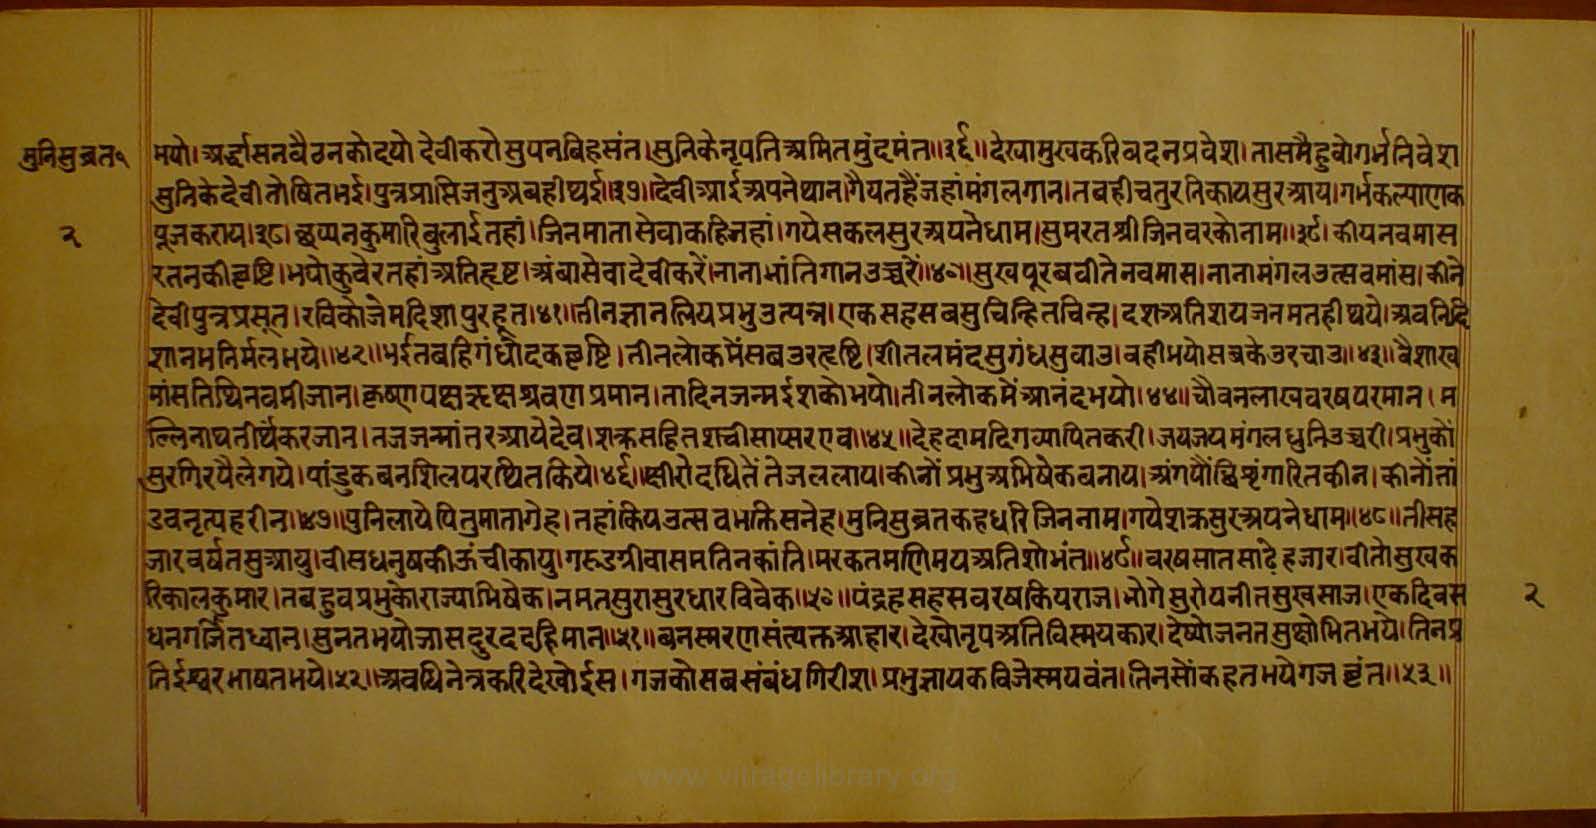 मुनिसुव्रत९
२
भयो।अर्द्धासनवैठनकोदयो देवीकरोसुपनबिहसंत।सुनिकेनृपतिअमितमुंदमंत॥३६॥देखामुखकरिवदनप्रवेश।तासमैहुवोगर्भनिवेश
सुनिकेदेवीतोषितभई।पुत्रप्राप्तिजनुअबहीथई॥३७॥देवीआईअपनेथान।गैयतहैंजहांमंगलगान।तबहीचतुरनिकायसुरआय।गर्भकल्याणक
पूजकराय।३८।छप्पनकुमारिबुलाईतहां।जिनमातासेवाकहिजहां।गयेसकलसुरअपनेधाम।सुमरतश्रीजिनवरकोनाम॥३९।कीयनवमास
रतनकीवृष्टि।भयोकुवेरतहांअतिहृष्ट।अंबासेवादेवीकरें।नानाभांतिगानउच्चरें॥४०॥सुखपूरबवीतेनवमास।नानामंगलउत्सवमांस।कीने
देवीपुत्रप्रसूत।रविकोजेमदिशापुरहूत।४१॥तीनज्ञानलियप्रभुउत्पन्न।एकसहसबसुचिन्हितचिन्ह।दशअतिशयजनमतहीथये।अवनिदि
शानभनिर्मलभये॥४२॥भईतबहिगंधोदकवृष्टि।तीनलोकमेंसबउरतृष्टि।शीतलमंदसुगंधसुवाउ।वहीभयोसबकेउरचाउ॥४३॥वैशाख
मांसतिथिनवमीजान।कृष्णपक्षऋक्षश्रवणप्रमान।तादिनजन्मईशकोभयो।तीनलोकमेंआनंदभयो।४४॥चौवनलाखवरषपरमान।म
ल्लिनाथतीर्थंकरजान।तजजन्मांतरआयेदेव।शक्रसहितशचीसाप्सरएव॥४५॥देहदामदिगव्यापितकरी।जयजयमंगलधुनिउच्चरी।प्रभुकों
सुरगिरपैलेगये।पांडुकबनशिलपरथितकिये।४६॥क्षीरोदधितेंतेजललाय।कीनोंप्रभुअभिषेकबनाय।अंगपौंछिश्रृंगारितकीन।कीनोंतां
डवनृत्यहरीन।४७॥पुनिलायेपितुमातागेह।तहांकियउत्सवभक्तिसनेह।मुनिसुब्रतकहधरिजिननाम।गयेशक्रसुरअपनेधाम॥४८॥तीसह
जारवर्षतसुआयु।वीसधनुषकीऊंचीकायु।गरुडग्रीवासमतिनकांति।मरकतमणिमयअतिशोभंत॥४९॥वरषसातसाढेहजार।वीतोसुखक
रिकालकुमार।तबहुवप्रभुकोराज्याभिषेक।नमतसुरासुरधारविवेक॥५०॥पंद्रहसहसवरषकियराज।भोगेसुरोपनीतसुखसाज।एकदिवस
घनगर्जितध्वान।सुनतभयो दुरददहिमान॥५१॥बनस्मरणसंत्यक्तआहार।देखोनृपअतिविस्मयकार।देष्योजनतसुक्षोभितभये।तिनप्र
तिईश्वरभाषतभये।५२॥अवधिनेत्रकरिदेखोईस।गजकोसबसंबंधगिरीश।प्रभुज्ञायकविजेस्मयवंत।तिनसोंकहतभयेगजव्रंत॥५३॥
२
www.vitragelibrary.org